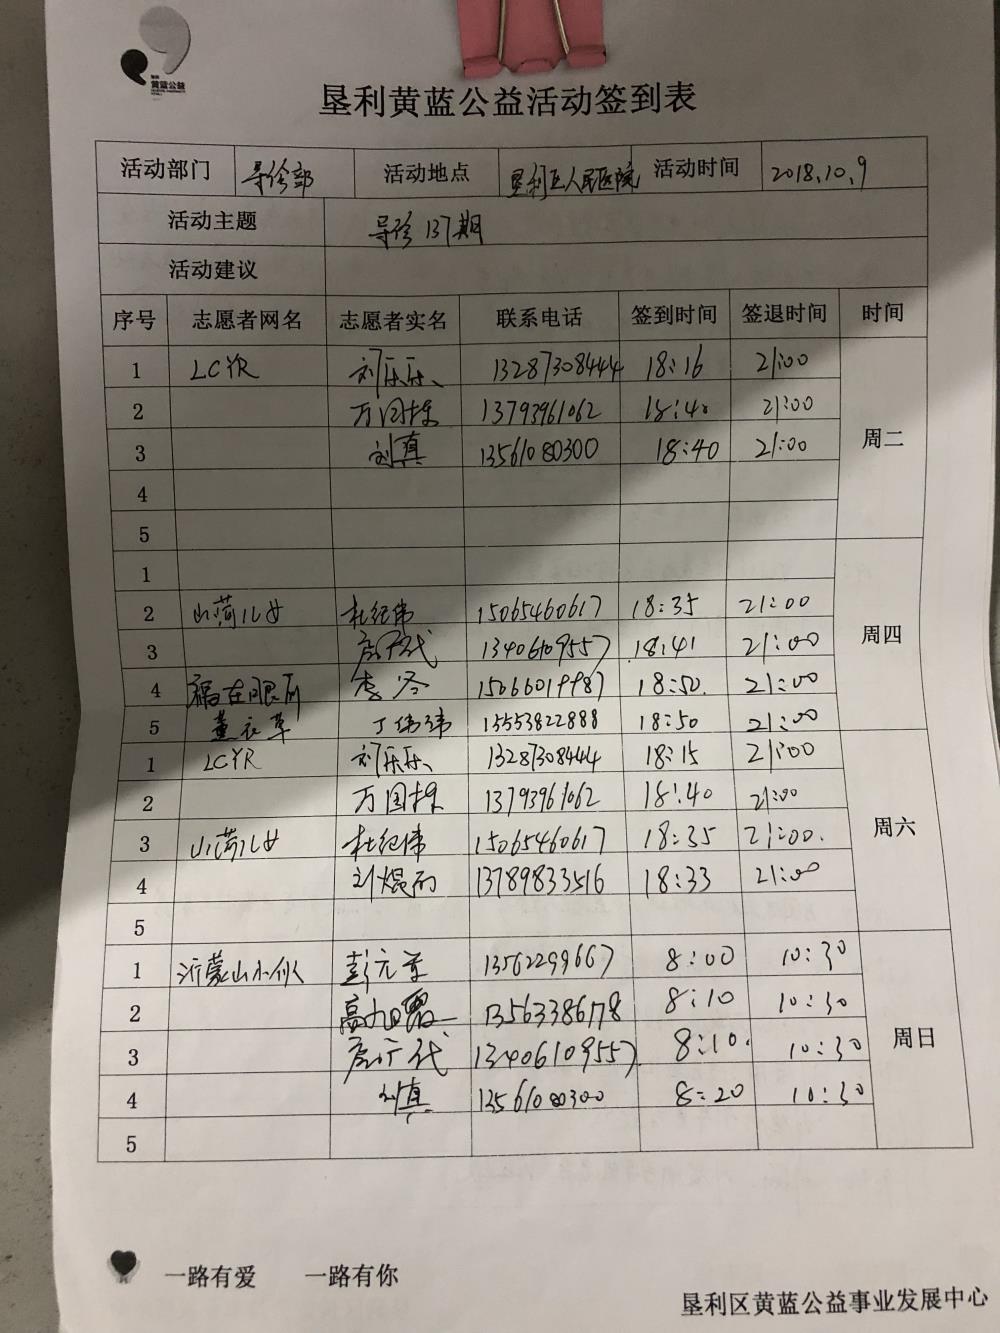 黄蓝公益
垦利黄蓝公益活动签到表
活动部门 导诊部 活动地点 垦利区人民医院 活动时间 2018.10.9
活动主题 导诊137期
活动建议
序号 志愿者网名 志愿者实名 联系电话 签到时间 签退时间 时间
1 LCYR 刘乐乐 13287308444 18:16 21:00
2 万国栋 13793961062 18:40 21:00
3 刘真 13561080300 18:40 21:00
周二
4
5
1
2 山菏儿女 杜纪伟 15065460617 18:35 21:00
3 13406109557 18:41 21:00
周四
4 福在眼前 李冬 15066019987 18:50 21:00
5 薰衣草 丁伟伟 15553822888 18:50 21:00
1 LCYR 刘乐乐 13287308444 18:15 21:00
2 万国栋 13793961062 18:40 21:00
周六
3 山菏儿女 杜纪伟 15065460617 18:35 21:00.
4 刘焜雨 13789833516 18:33 21:00
5
1 沂蒙山小伙 彭元 13562299667 8:00 10:30
2 13563386178 8:10 10:30
3 13406109557 8:10. 10:30
周日
4 刘真 13561080300 8:20 10:30
5
一路有爱 一路有你
垦利区黄蓝公益事业发展中心